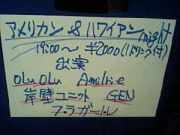 アメリカン & ハワイアン night
19:00〜 ¥2000(1ドリンク付)
出演
OLU OLU Amélie
岸壁ユニット GEN
フラガール